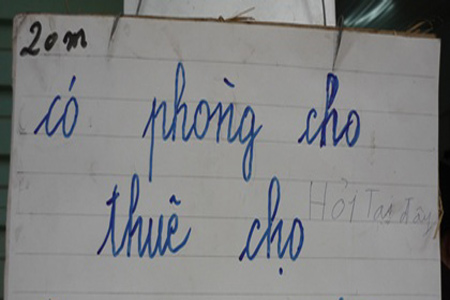 20m
có phòng cho
thuê chọ
Hỏi Tại đây